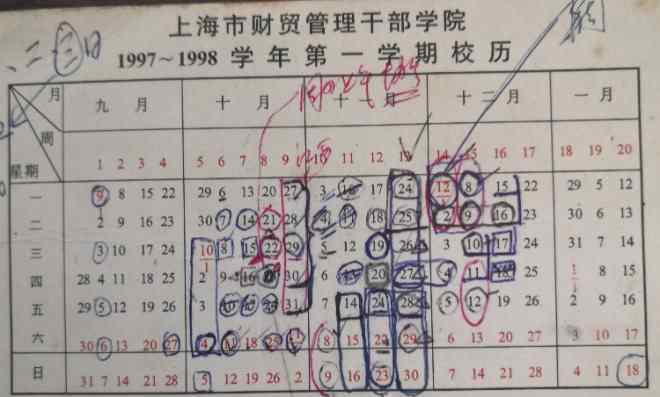 上海市财贸管理干部学院
1997~1998 学年第一学期校历
、二 三日
月 九月 十月 十一月 十二月 一月
周
星期 1 2 3 4 5 6 7 8 9 10 11 12 13 14 15 16 17 18 19 20
一 8 15 22 29 6 13 20 27 3 10 17 24 12/1 8 15 22 29 5 12
二 2 9 16 23 30 7 14 21 28 4 11 18 25 2 9 16 23 30 6 13
三 3 10 17 24 10/1 8 15 22 29 5 12 19 26 3 10 17 24 31 7 14
四 28 4 11 18 25 2 9 16 30 6 13 20 27 4 11 18 25 1/1 8 15
五 29 5 12 19 26 3 10 31 7 14 21 28 5 12 19 26 2 9 16
六 30 6 13 20 27 4 11 18 25 8 15 22 29 6 13 20 27 3 10 17
日 31 7 14 21 28 5 12 19 26 2 9 16 23 30 7 14 21 28 4 11 18